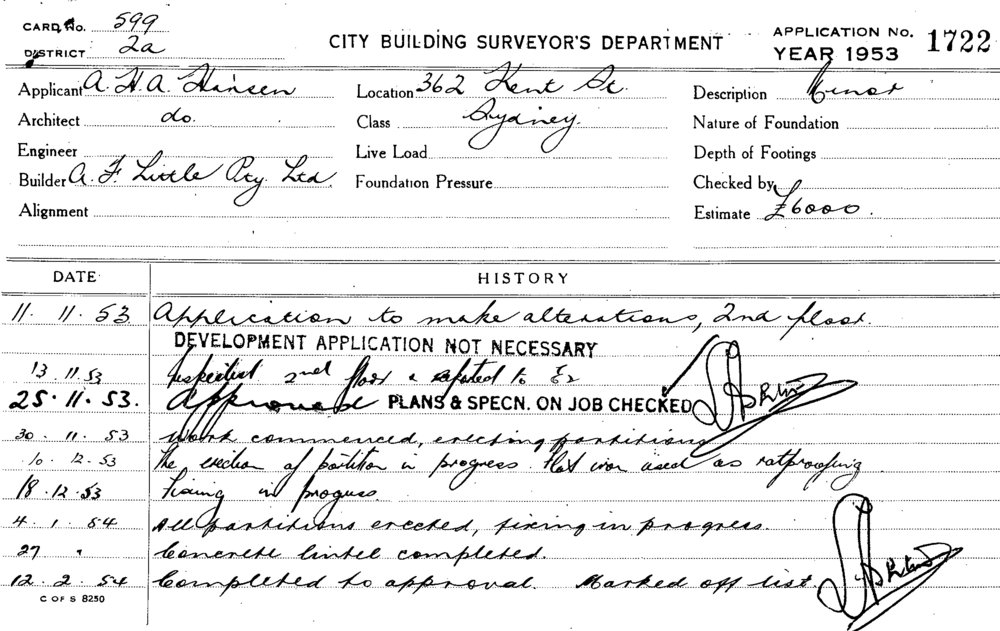 CARD No. 599
DISTRICT 2a
CITY BUILDING SURVEYOR'S DEPARTMENT
APPLICATION No. 1722
YEAR 1953
Applicant A. H. A. Hansen
Location 362 Kent St.
Description Minor
Architect do.
Class Sydney.
Nature of Foundation
Engineer
Live Load
Depth of Footings
Builder A. F. Little Pty. Ltd.
Foundation Pressure
Checked by
Alignment
Estimate £6000.
DATE
HISTORY
11. 11. 53 Application to make alterations, 2nd floor.
DEVELOPMENT APPLICATION NOT NECESSARY
13. 11. 53 Inspected 2nd floor & reported to
25. 11. 53. Approved PLANS & SPECN. ON JOB CHECKED
30. 11. 53 Work commenced, erecting partitions
10. 12. 53 The erection of partition in progress. Flat iron used as ratproofing
18. 12. 53 Fixing in progress.
4. 1. 54 All partitions erected, fixing in progress.
27 " Concrete lintel completed.
12. 2. 54 Completed to approval. Marked off list.
C OF S 8250